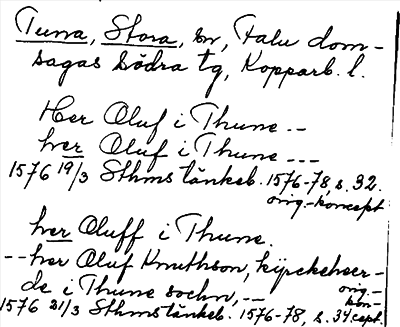 Tuna, Stora, sn, Falu dom-
sagas Södra tg, Kopparb. l.
Her Oluf i Thune --
her Oluf i Thune ---
1576 19/3 Sthms tänkeb. 1576-78, s. 32.
orig.-koncept
her Oluff i Thune.
--her Oluf Knuthson, kyrckeheer-
de i Thune sochn, --
orig.-
kon-
1576 21/3 Sthms tänkeb. 1576-78, s. 34 cept.